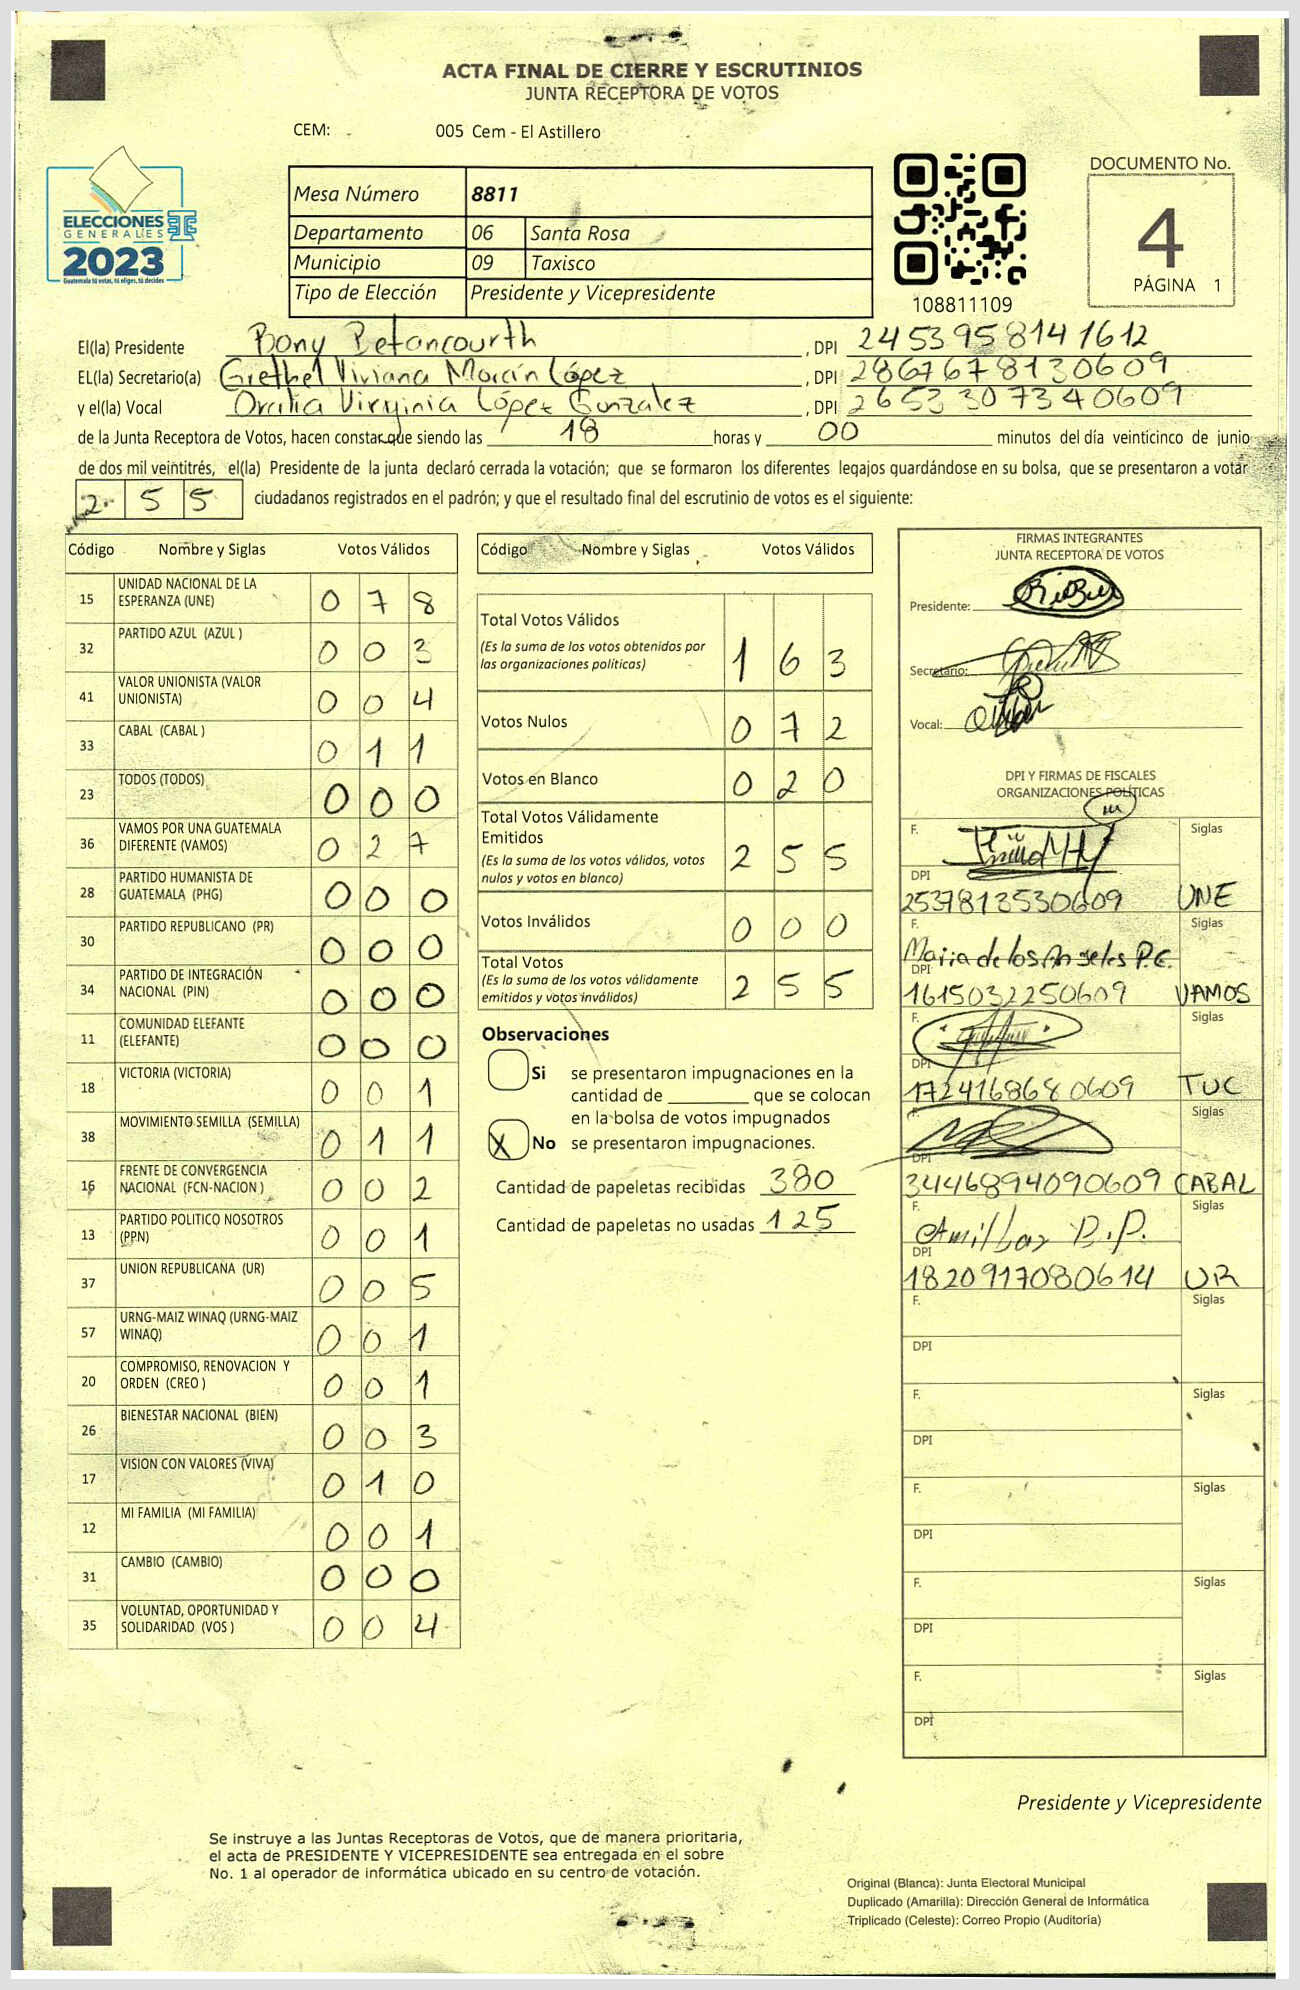 ACTA FINAL DE CIERRE Y ESCRUTINIOS
JUNTA RECEPTORA DE VOTOS
CEM: 005 Cem - El Astillero
ELECCIONES
GENERALES
2023
Guatemala tú votas, tú eliges, tú decides
Mesa Número 8811
Departamento 06 Santa Rosa
Municipio 09 Taxisco
Tipo de Elección Presidente y Vicepresidente
108811109
DOCUMENTO No.
4
PÁGINA 1
El(la) Presidente Bony Betancourth , DPI 2453958141612
EL(la) Secretario(a) Grethel Viviana Morcín López , DPI 2867678130609
y el(la) Vocal Oralia Virginia López Gonzalez , DPI 2653307340609
de la Junta Receptora de Votos, hacen constar que siendo las 18 horas y 00 minutos del día veinticinco de junio
de dos mil veintitrés, el(la) Presidente de la junta declaró cerrada la votación; que se formaron los diferentes legajos guardándose en su bolsa, que se presentaron a votar
2 5 5 ciudadanos registrados en el padrón; y que el resultado final del escrutinio de votos es el siguiente:
Código Nombre y Siglas Votos Válidos
15 UNIDAD NACIONAL DE LA ESPERANZA (UNE) 0 7 8
32 PARTIDO AZUL (AZUL ) 0 0 3
41 VALOR UNIONISTA (VALOR UNIONISTA) 0 0 4
33 CABAL (CABAL ) 0 1 1
23 TODOS (TODOS) 0 0 0
36 VAMOS POR UNA GUATEMALA DIFERENTE (VAMOS) 0 2 7
28 PARTIDO HUMANISTA DE GUATEMALA (PHG) 0 0 0
30 PARTIDO REPUBLICANO (PR) 0 0 0
34 PARTIDO DE INTEGRACIÓN NACIONAL (PIN) 0 0 0
11 COMUNIDAD ELEFANTE (ELEFANTE) 0 0 0
18 VICTORIA (VICTORIA) 0 0 1
38 MOVIMIENTO SEMILLA (SEMILLA) 0 1 1
16 FRENTE DE CONVERGENCIA NACIONAL (FCN-NACION ) 0 0 2
13 PARTIDO POLITICO NOSOTROS (PPN) 0 0 1
37 UNION REPUBLICANA (UR) 0 0 5
57 URNG-MAIZ WINAQ (URNG-MAIZ WINAQ) 0 0 1
20 COMPROMISO, RENOVACION Y ORDEN (CREO ) 0 0 1
26 BIENESTAR NACIONAL (BIEN) 0 0 3
17 VISION CON VALORES (VIVA) 0 1 0
12 MI FAMILIA (MI FAMILIA) 0 0 1
31 CAMBIO (CAMBIO) 0 0 0
35 VOLUNTAD, OPORTUNIDAD Y SOLIDARIDAD (VOS ) 0 0 4
Código Nombre y Siglas Votos Válidos
Total Votos Válidos 1 6 3
(Es la suma de los votos obtenidos por
las organizaciones políticas)
Votos Nulos 0 7 2
Votos en Blanco 0 2 0
Total Votos Válidamente
Emitidos 2 5 5
(Es la suma de los votos válidos, votos
nulos y votos en blanco)
Votos Inválidos 0 0 0
Total Votos 2 5 5
(Es la suma de los votos válidamente
emitidos y votos inválidos)
Observaciones
Si se presentaron impugnaciones en la
cantidad de ________ que se colocan
en la bolsa de votos impugnados
X No se presentaron impugnaciones.
Cantidad de papeletas recibidas 380
Cantidad de papeletas no usadas 125
FIRMAS INTEGRANTES
JUNTA RECEPTORA DE VOTOS
Presidente:
Secretario:
Vocal:
DPI Y FIRMAS DE FISCALES
ORGANIZACIONES POLÍTICAS
F. Siglas
DPI
2537813530609 UNE
F. Maria de los Angeles P.E. Siglas
DPI
1615032250609 VAMOS
F. Siglas
DPI
1724168680609 TUC
F. Siglas
DPI
3446894090609 CABAL
F. Amilbar P.P. Siglas
DPI
1820917080614 UR
F. Siglas
DPI
F. Siglas
DPI
F. Siglas
DPI
F. Siglas
DPI
F. Siglas
DPI
Presidente y Vicepresidente
Se instruye a las Juntas Receptoras de Votos, que de manera prioritaria,
el acta de PRESIDENTE Y VICEPRESIDENTE sea entregada en el sobre
No. 1 al operador de informática ubicado en su centro de votación.
Original (Blanca): Junta Electoral Municipal
Duplicado (Amarilla): Dirección General de Informática
Triplicado (Celeste): Correo Propio (Auditoría)